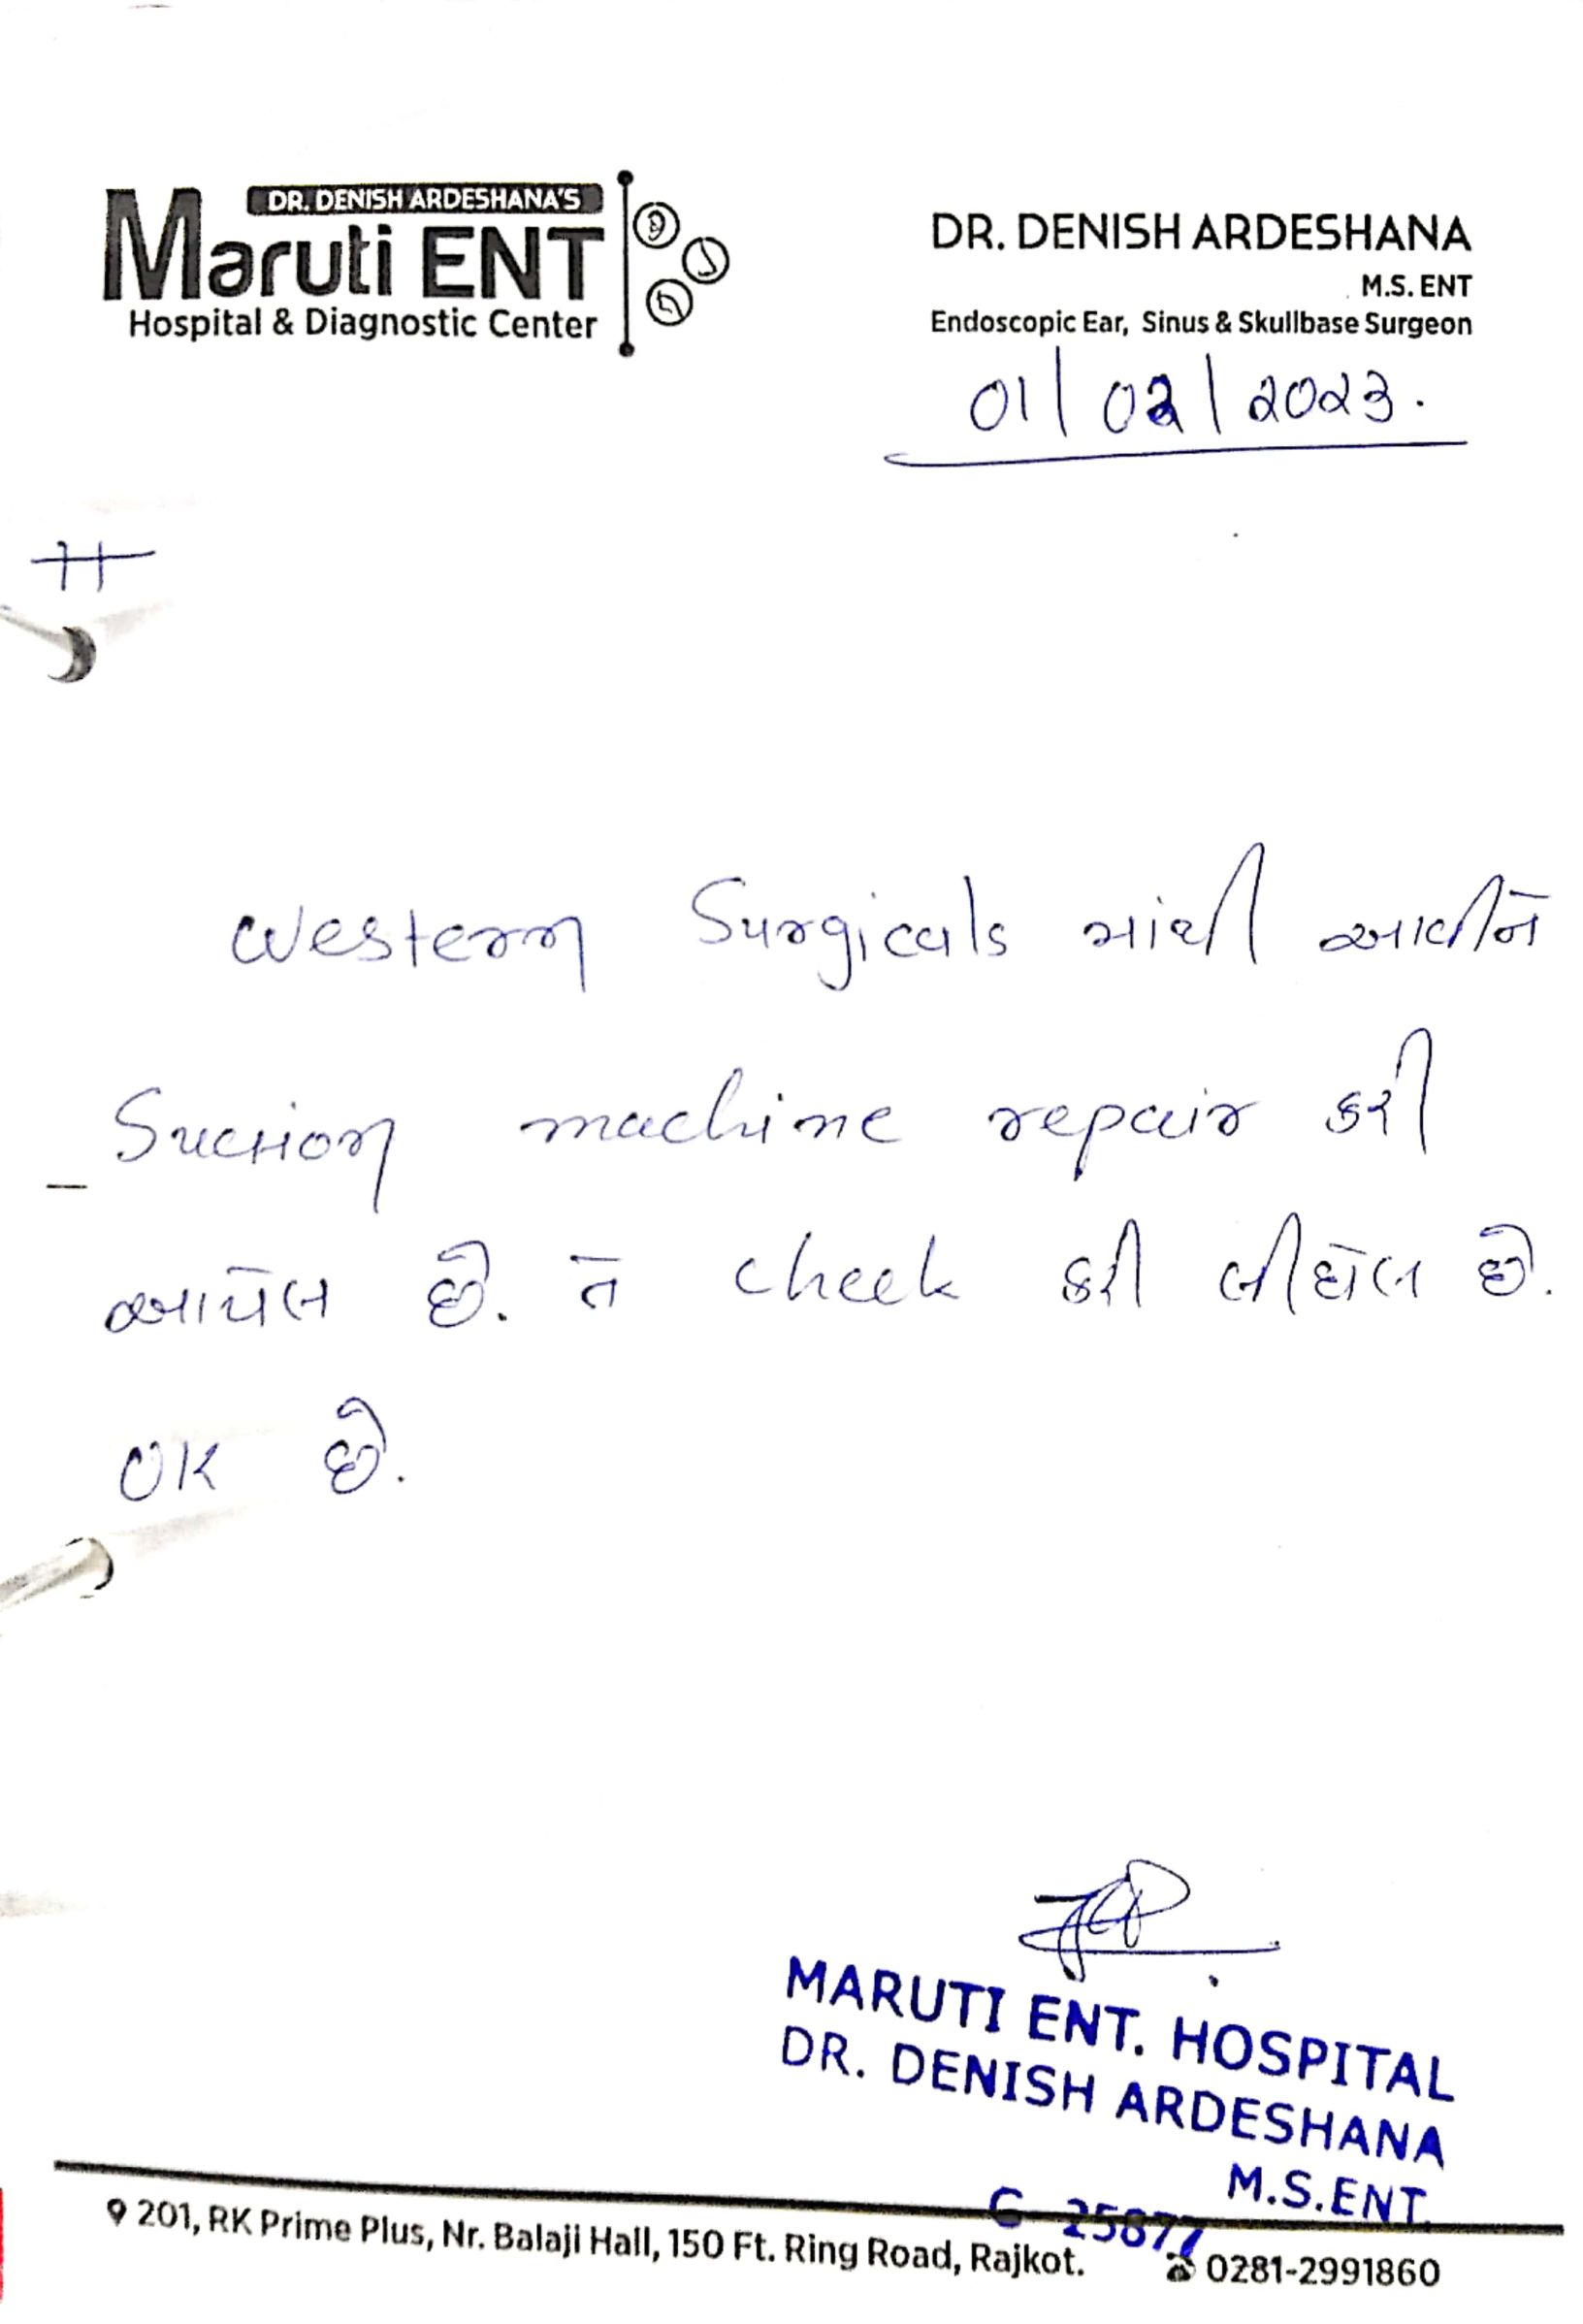 DR. DENISH ARDESHANA'S
Maruti ENT
Hospital & Diagnostic Center
DR. DENISH ARDESHANA
M.S. ENT
Endoscopic Ear, Sinus & Skullbase Surgeon
01/02/2023.
Western Surgicals માંથી આવીને
Suction machine repair કરી
આપેલ છે. તે check કરી લીધેલ છે.
OK છે.
MARUTI ENT. HOSPITAL
DR. DENISH ARDESHANA
M.S.ENT.
G 25877
201, RK Prime Plus, Nr. Balaji Hall, 150 Ft. Ring Road, Rajkot.
0281-2991860